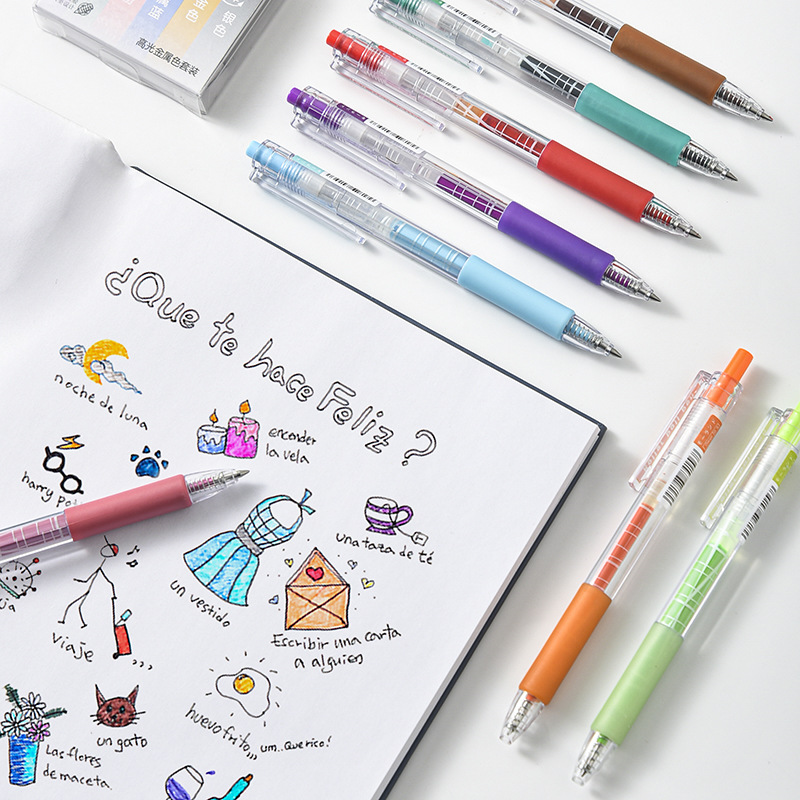 银色
金色
蓝
高光金属色套装
¿Que te hace Feliz?
noche de luna
encender
la vela
harry
una taza de té
un vestido
Escribir una carta
a alguien
viaje
,,,
huevo frito,,, um..Que rico!
un gato
Las flores
de maceta.